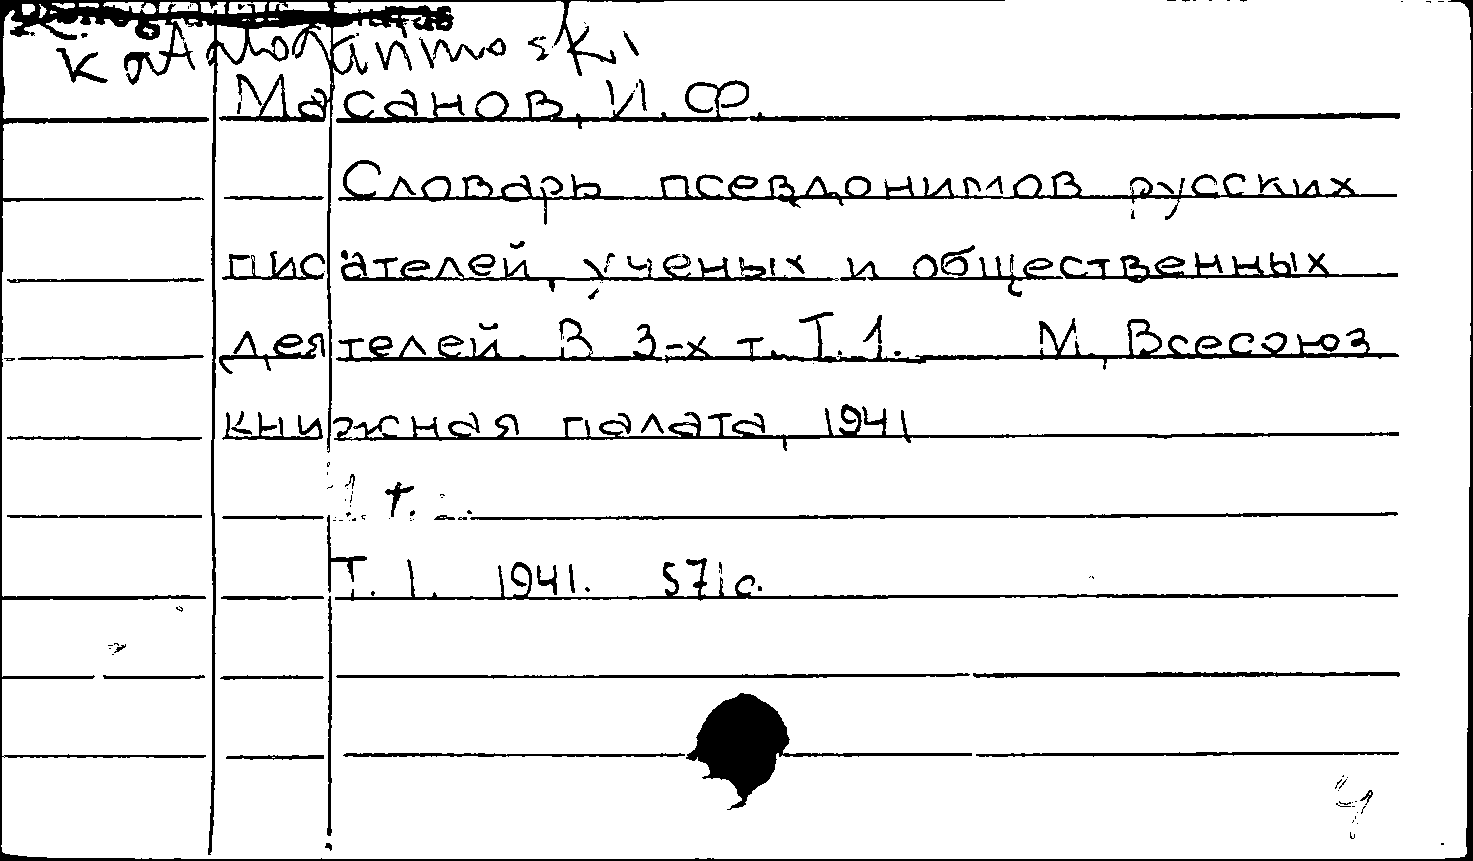 Масанов, И. Ф.
Словарь псевдонимов русских
писателей, ученых и общественных
деятелей. В 3-х т. Т. 1. М., Всесоюз
книжная палата, 1941
1. т.
Т. 1. 1941. 571 с.
4